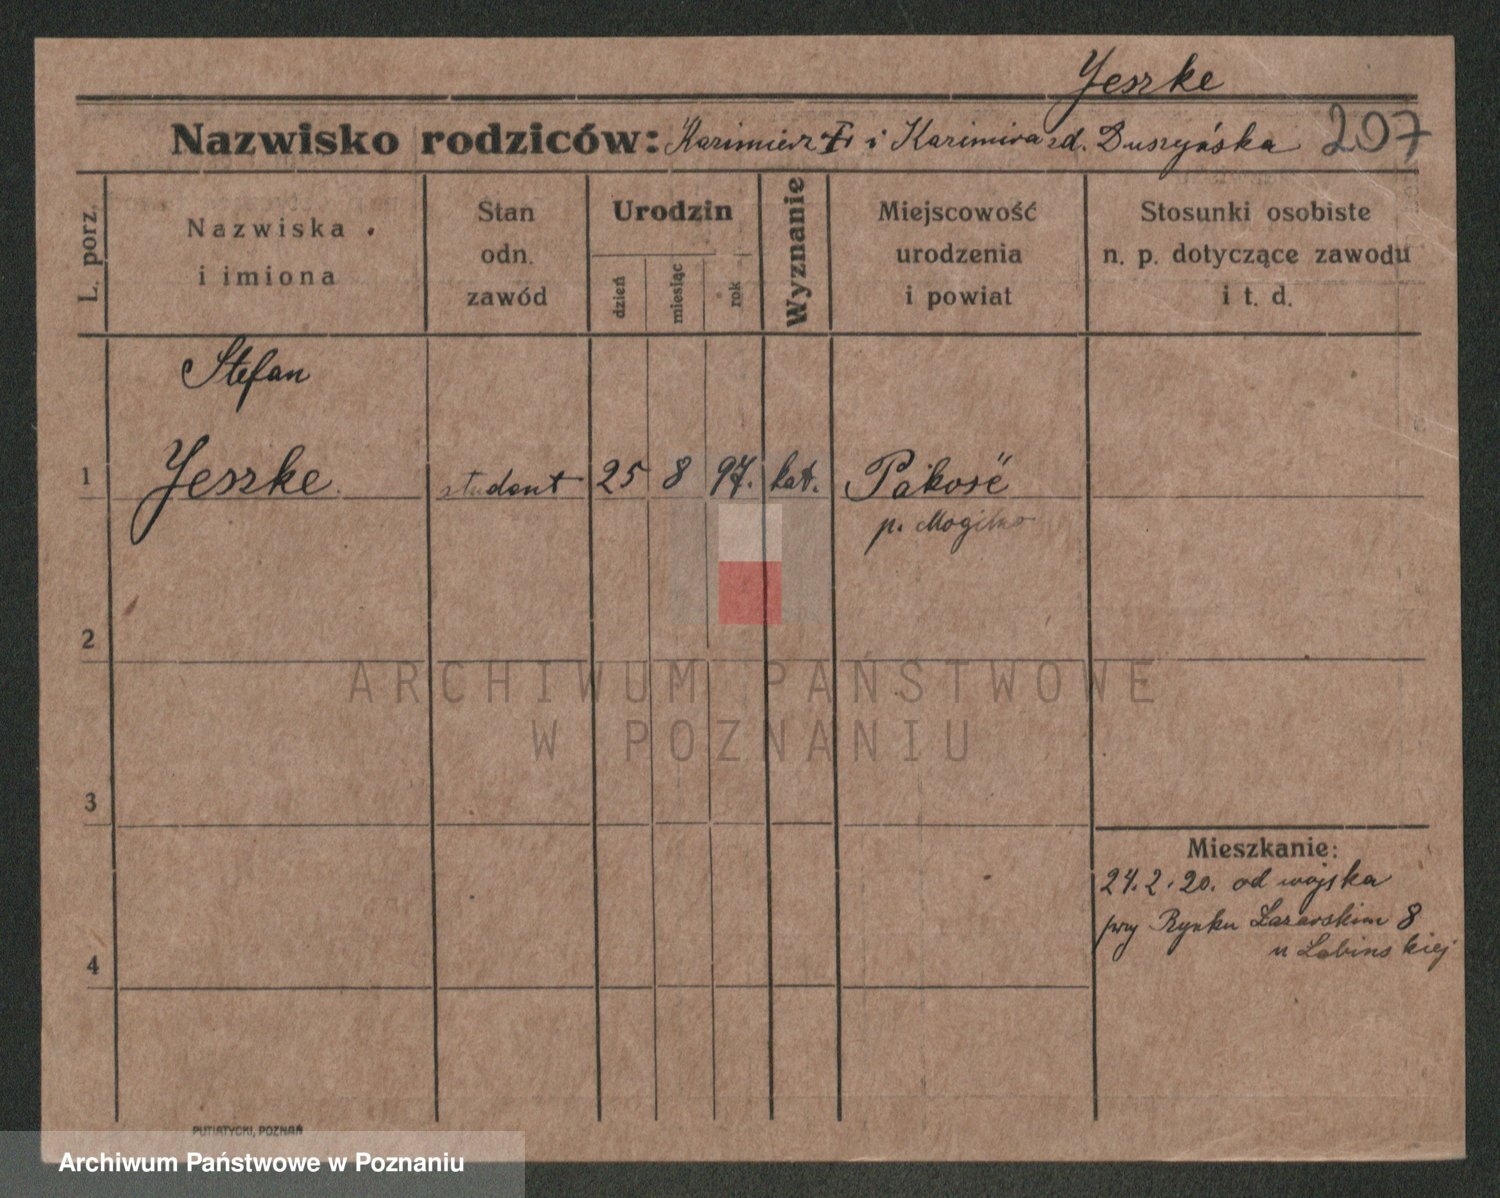 Jeszke
Nazwisko rodziców: Kazimierz i Kazimira zd. Duszyńska 207
L. porz.
Nazwiska
i imiona
Stan
odn.
zawód
Urodzin
dzień
miesiąc
rok
Wyznanie
Miejscowość
urodzenia
i powiat
Stosunki osobiste
n. p. dotyczące zawodu
i t. d.
Stefan
1 Jeszke student 25 8 97. kat. Pakość
p. Mogilno
2
ARCHIWUM PAŃSTWOWE
W POZNANIU
3
Mieszkanie:
24.2.20. od wojska
przy Rynku Łazarskim 8
u Łabinskiej
4
PUTIATYCKI, POZNAŃ
Archiwum Państwowe w Poznaniu